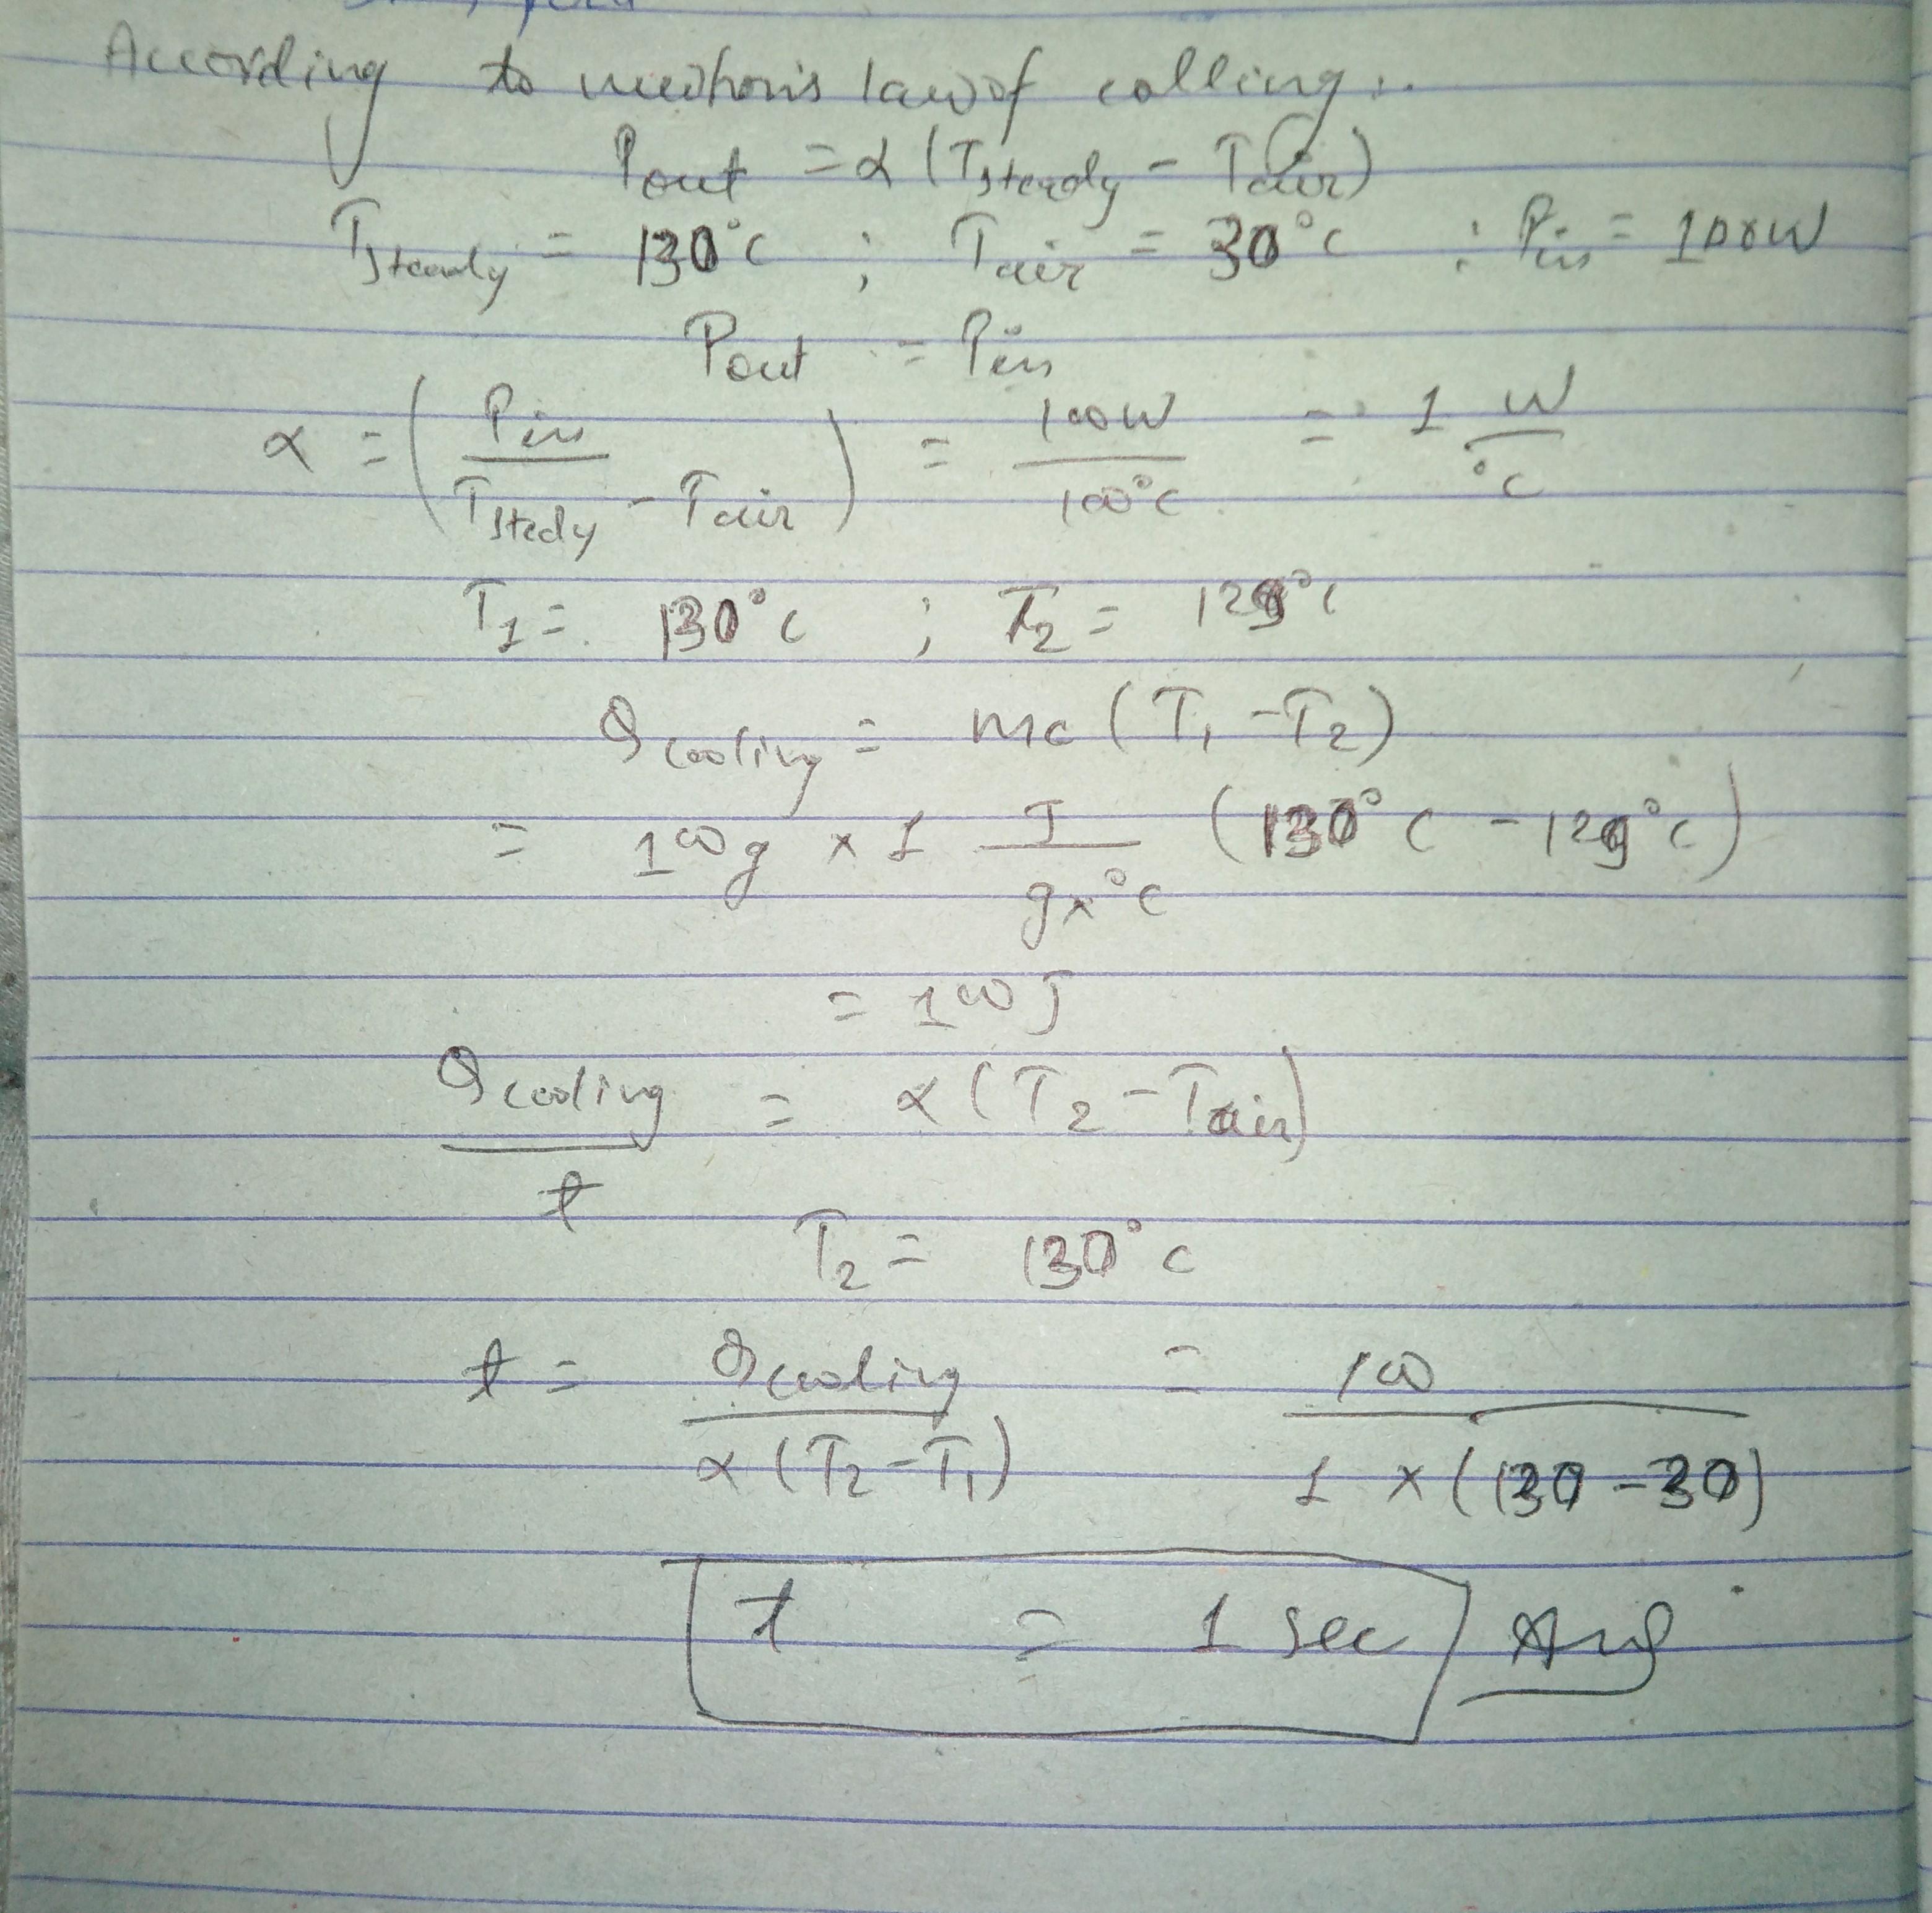 According to newton's law of colling:.
Pout = α (Tsteady - Tair)
Tsteady = 130°C ; Tair = 30°C ; Pin = 100W
Pout = Pin
α = ( Pin / Tstedy - Tair ) = 100W / 100°C = 1 W / °C
T1 = 130°C ; T2 = 129°C
Qcooling = mc (T1 - T2)
= 100g × 1 J / g×°C (130°C - 129°C)
= 100 J
Qcooling / t = α (T2 - Tair)
T2 = 130°C
t = Qcooling / α (T2 - T1) = 100 / 1 × (130 - 30)
t = 1 sec Ans